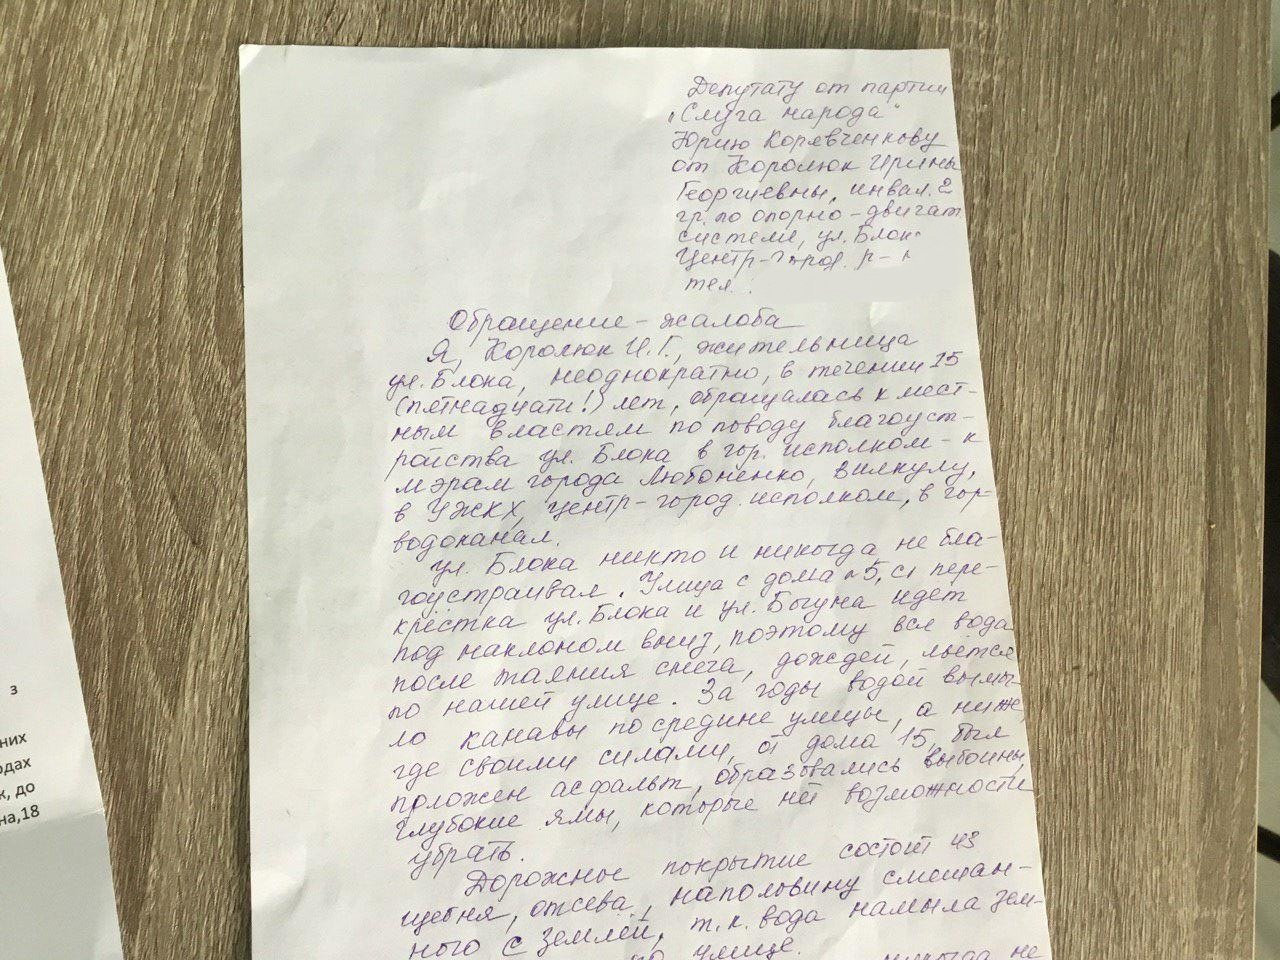 Депутату от партии
"Слуга народа"
Юрию Корявченкову
от Королюк Ирины
Георгиевны, инвал. 2
гр. по опорно-двигат
системе, ул. Блока
Центр-город. р-
тел.
Обращение - жалоба
Я, Королюк И.Г., жительница
ул. Блока, неоднократно, в течении 15
(пятнадцати!) лет, обращалась к мест-
ным властям по поводу благоуст-
ройства ул. Блока в гор. исполком - к
мэрам города Любоненко, Вилкулу,
в УЖКХ, Центр-город. исполком, в гор-
водоканал.
ул. Блока никто и никогда не бла-
гоустраивал. Улица с дома №5, с пере-
крёстка ул. Блока и ул. Быгуна идет
под наклоном вниз, поэтому вся вода
после таяния снега, дождей, льётся
по нашей улице. За годы водой вымы-
ло канавы по средине улицы, а ниже,
где своими силами, от дома 15, был
положен асфальт, образовались выбоины,
глубокие ямы, которые нет возможности
убрать.
Дорожное покрытие состоит из
щебня, отсева, наполовину смешан-
ного с землёй, т.к. вода намыла зем-
по улице.
никогда не
з
них
одах
к, до
на,18